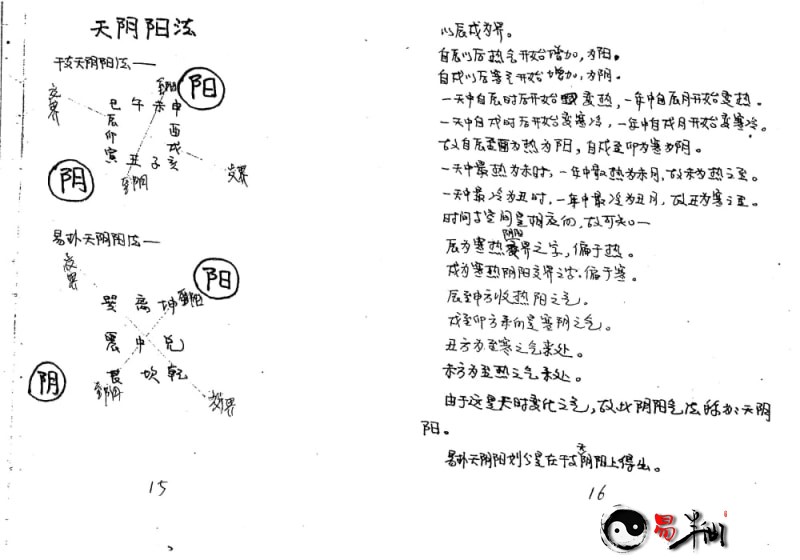 天阴阳法
干支天阴阳法——
阳
至阳
交界
巳 午 未 申
辰
卯
寅
酉
戌
丑 子 亥
阴
至阴
交界
易卦天阴阳法——
交界
阳
巽 离 坤 至阳
震 中 兑
阴
艮 坎 乾
至阴
交界
15
以辰戌为界。
自辰以后热气开始增加,为阳。
自戌以后寒气开始增加,为阴。
一天中自辰时后开始变热,一年中自辰月开始变热。
一天中自戌时后开始变寒冷,一年中自戌月开始变寒冷。
故自辰至酉为热为阳,自戌至卯为寒为阴。
一天中最热为未时,一年中最热为未月,故未为热之至。
一天中最冷为丑时,一年中最冷为丑月,故丑为寒之至。
时间与空间是相应的,故可知:—
辰为寒热阴阳交界之字,偏于热。
戌为寒热阴阳交界之字,偏于寒。
辰至申方收热阳之气。
戌至卯方来的是寒阴之气。
丑方为至寒之气来处。
未方为至热之气来处。
由于这是天时变化之气,故此阴阳气法称为:天阴
阳。
易卦天阴阳划分是在干支天阴阳上得出。
16
易半仙